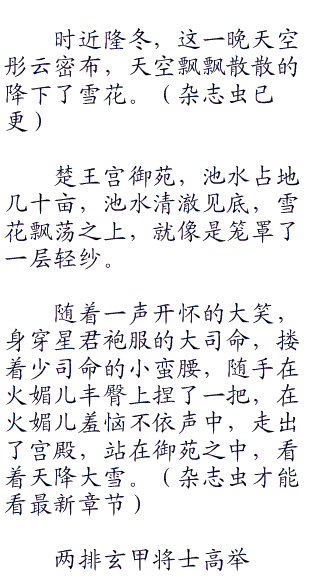 时近隆冬，这一晚天空
彤云密布，天空飘飘散散的
降下了雪花。（杂志虫已
更）
楚王宫御苑，池水占地
几十亩，池水清澈见底，雪
花飘荡之上，就像是笼罩了
一层轻纱。
随着一声开怀的大笑，
身穿星君袍服的大司命，搂
着少司命的小蛮腰，随手在
火媚儿丰臀上捏了一把，在
火媚儿羞恼不依声中，走出
了宫殿，站在御苑之中，看
着天降大雪。（杂志虫才能
看最新章节）
两排玄甲将士高举